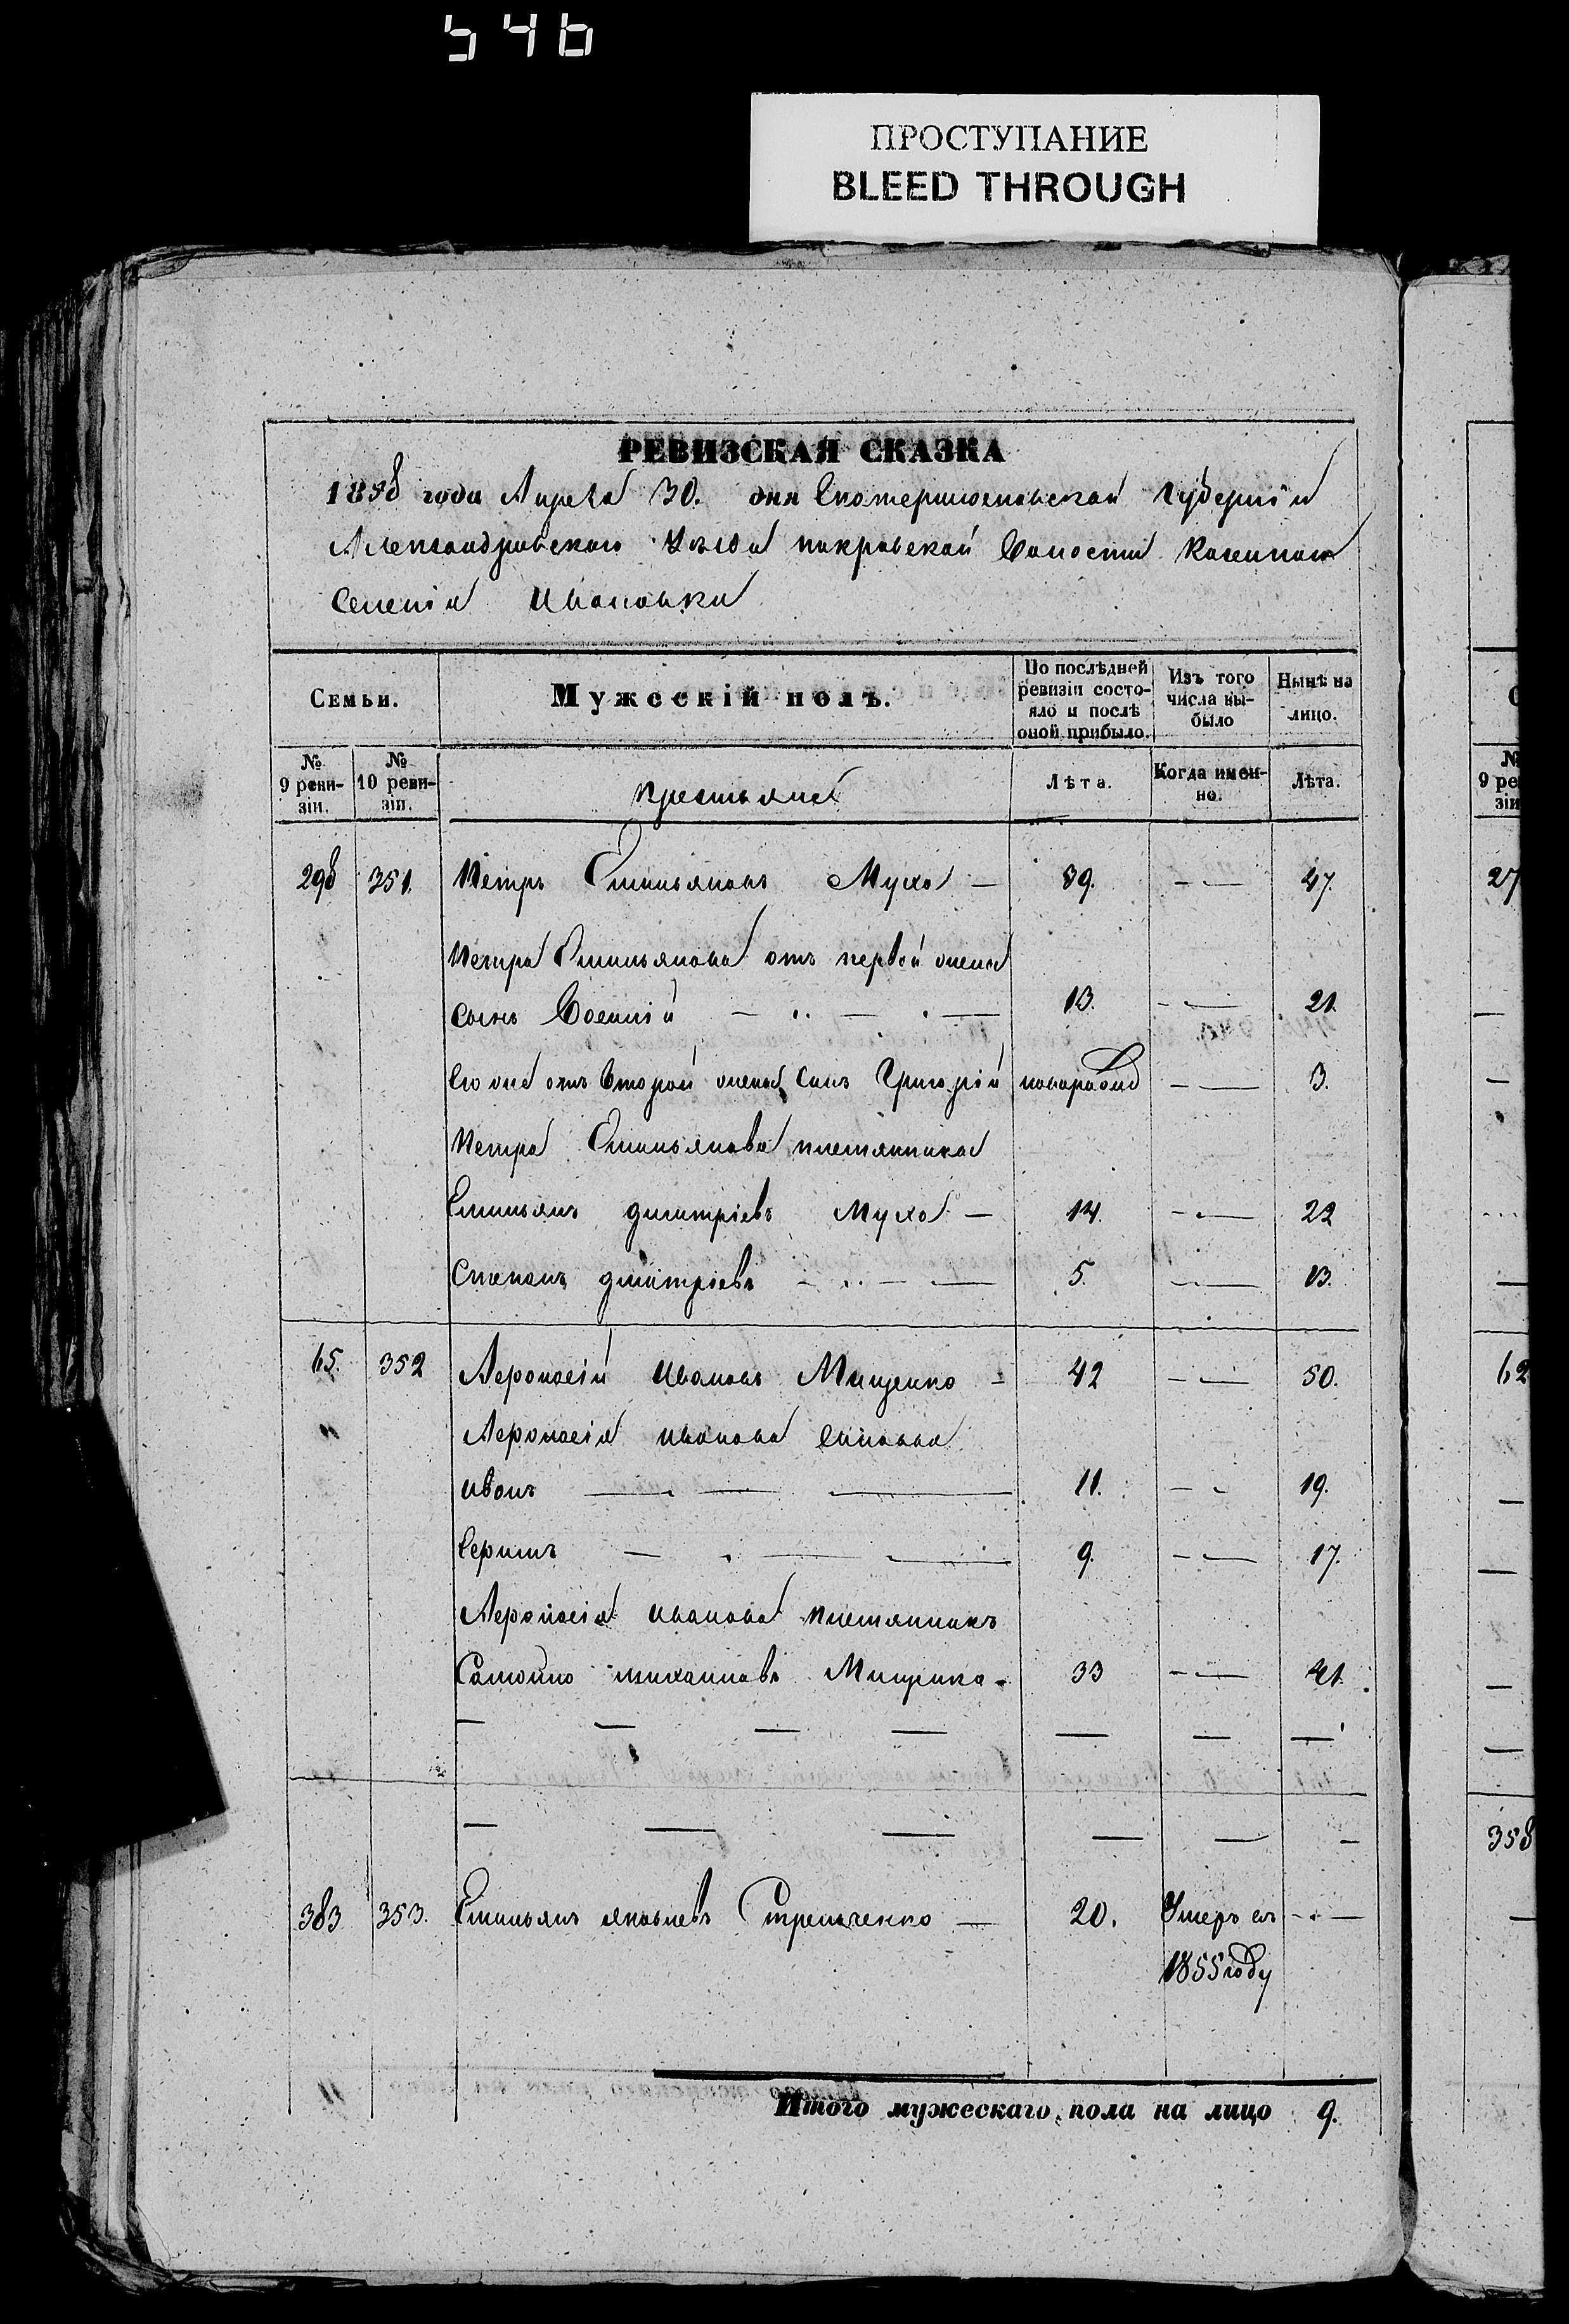 546
ПРОСТУПАНИЕ
BLEED THROUGH
РЕВИЗСКАЯ СКАЗКА
1858 года Апреля 30. дня Екатеринославской Губерніи
Александровскаго Уѣзда покровской Волости Казеннаго
Селенія Ивановки
Семьи.
Мужескій полъ.
По послѣдней ревизіи состояло и послѣ оной прибыло.
Изъ того числа выбыло
Нынѣ на лицо.
№ 9 ревизіи.
№ 10 ревизіи.
крестьяне
Лѣта.
Когда именно.
Лѣта.
298 351. Петръ Емильяновъ Муха — 39. — — 47.
Петра Емильянова отъ первой жены
сынъ Василій — — 13. — — 21.
Его же отъ второй жены Сынъ Григорій новорожд — — 3.
Петра Емильянова племянники
Емильянъ дмитріевъ Муха — 14. — — 22
Степанъ дмитріевъ — — 5. — — 13.
65. 352 Афонасій Ивановъ Мищенко — 42 — — 50.
Афонасія Иванова Сыновья
Иванъ — — — 11. — — 19.
Ефимъ — — — 9. — — 17.
Афонасія Иванова племянникъ
Самойло михайловъ Мищенко — 33 — — 41.
— — — — — — —
— — — — — —
383 353. Емильянъ яковлевъ Стрельченко — 20. Умеръ въ — —
1855 году
Итого мужескаго пола на лицо 9.
№
9 ре
зіи
27
62
358